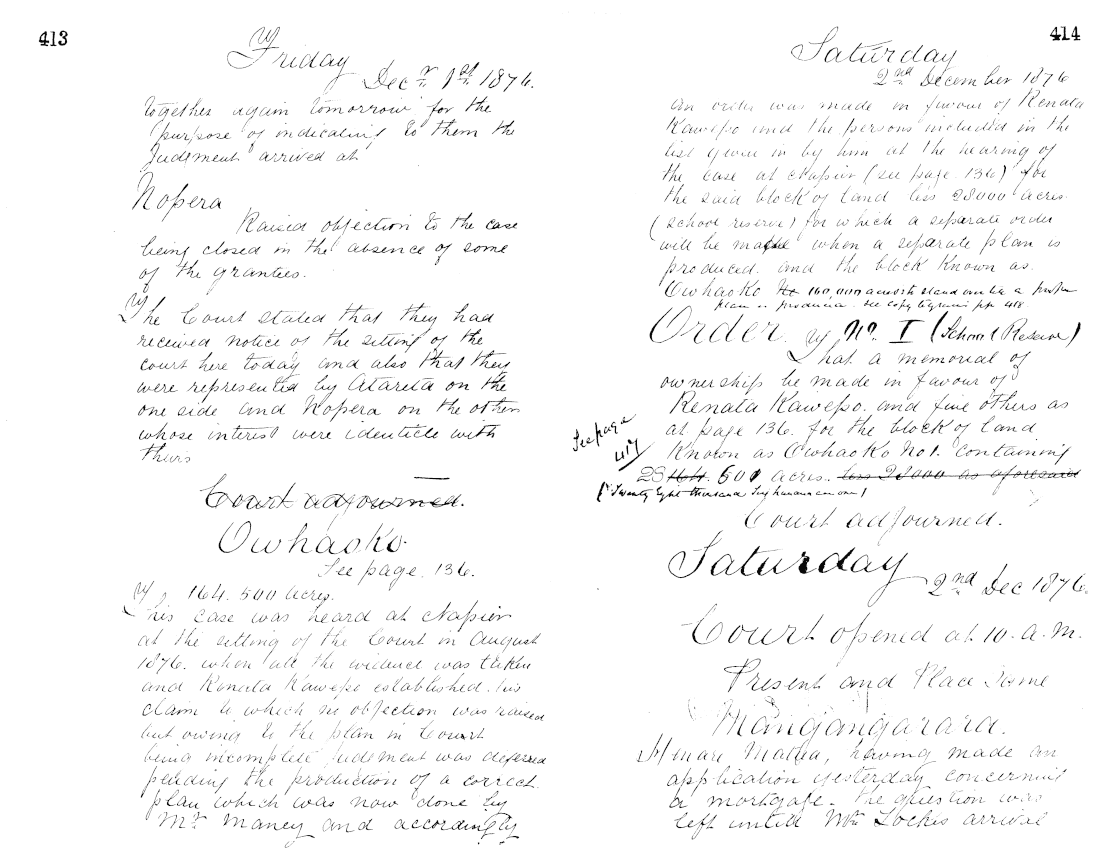 413
Friday
Decr 1st 1876.
together again tomorrow for the
purpose of indicating to them the
Judgment arrived at
Nopera
Raised objection to the case
being closed in the absence of some
of the grantees.
The Court stated that they had
received notice of the sitting of the
court here today and also that they
were represented by Atareta on the
one side and Nopera on the other
whose interest were identicle with
theirs
Court adjourned.
Owhaoko
See page 136.
164.500 acres.
This case was heard at Napier
at the sitting of the Court in August
1876. when all the evidence was taken
and Renata Kawepo established his
claim to which no objection was raised
but owing to the plan in Court
being incomplete judgment was deferred
pending the production of a correct
plan which was now done by
Mr Maney and accordingly
414
Saturday
2nd December 1876
an order was made in favour of Renata
Kawepo and the persons included in the
list given in by him at the hearing of
the case at Napier (see page 136) for
the said block of land less 28000 acres.
(School reserve) for which a separate order
will be made when a separate plan is
produced. and the block known as
Owhaoko 160,000 acres to stand over till a proper
plan is produced. See copy pp 418.
Order No. I (School Reserve)
That a memorial of
ownership be made in favour of
Renata Kawepo. and five others as
at page 136. for the block of land
Known as Owhaoko No 1. containing
See page
417
28164.501 acres. less 28000 as aforesaid
(Twenty Eight thousand
Court adjourned.
Saturday
2nd Dec 1876.
Court opened at 10. a.m.
Present and Place Same
Mangangarara.
Henare Matua, having made an
application yesterday concerning
a mortgage. The question was
left until Mr Lockes arrival